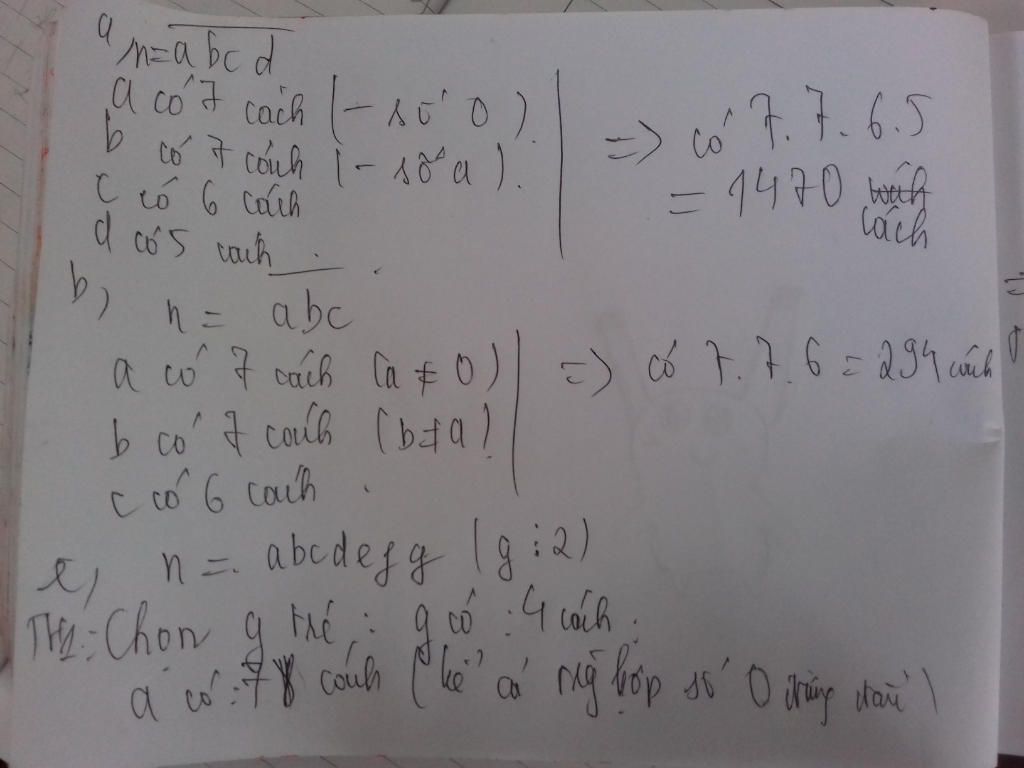 a
n = abcd
a có 7 cách (- số 0).
b có 7 cách (- số a).
c có 6 cách
d có 5 cách.
=> có 7.7.6.5
= 1470 cách
cách
b) n = abc
a có 7 cách (a ≠ 0)
b có 7 cách (b ≠ a)
c có 6 cách.
=> có 7.7.6 = 294 cách
n = abcdefg (g ⋮ 2)
TH1: Chọn g trc: g có: 4 cách.
a có: 7 cách (kể cả số 0 đứng đầu)